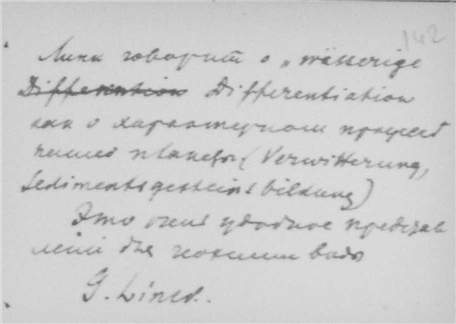 142
Линк говорит о „wässerige
Differention Differentiation
как о характерном процессе
нашей планеты (Verwitterung,
Sedimentsgesteinsbildung)
Это очень удобное представ
для геохимии воды
G. Linck.